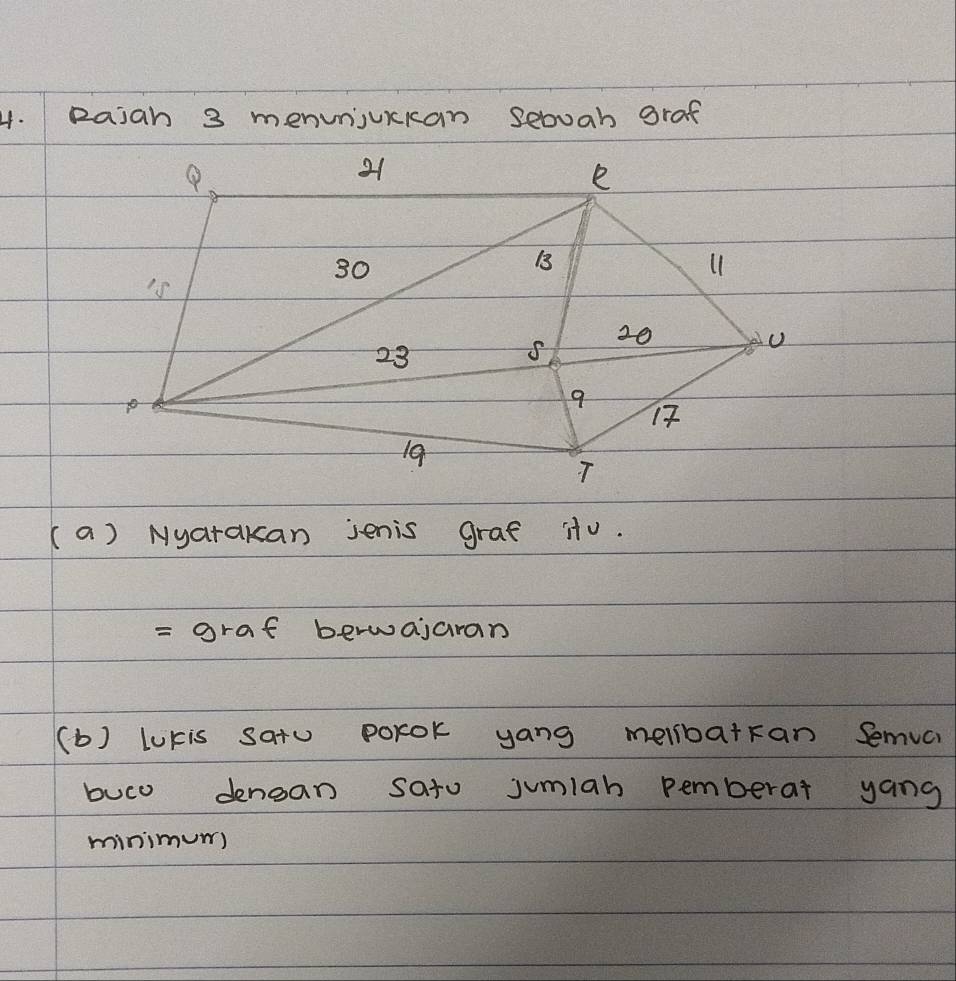 4. Rajah 3 menunjukkan sebuah graf
Q 21 R
30 13 11
15
23 S 20 U
P 9 17
19
T
(a) Nyatakan jenis graf itu.
= graf berwajaran
(b) lukis satu pokok yang melibatkan semua
bucu dengan satu jumlah pemberat yang
minimum)